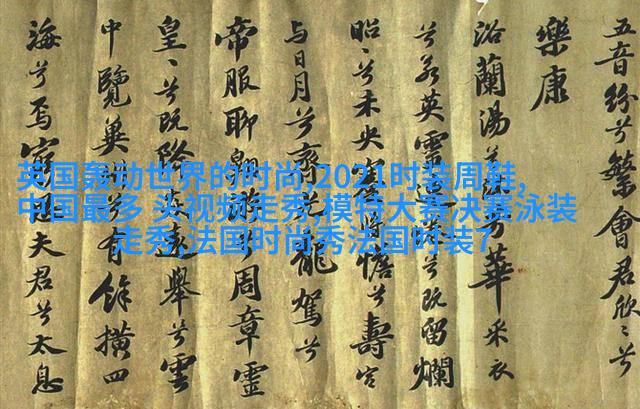 五音紛兮繁會君欣々兮
樂康
浴蘭湯兮芳華采衣
兮若英靈兮既留爛
昭々兮未央憺兮壽宮
与日月兮齊龍駕兮
帝服聊翱周章靈
皇々兮既降舉兮雲
中覽冀有餘橫四
海兮焉窮夫君兮太息
英国轰动世界的时尚,2021时装周鞋,
中国最多 头视频走秀,模特大赛决赛泳装
走秀,法国时尚秀法国时装7